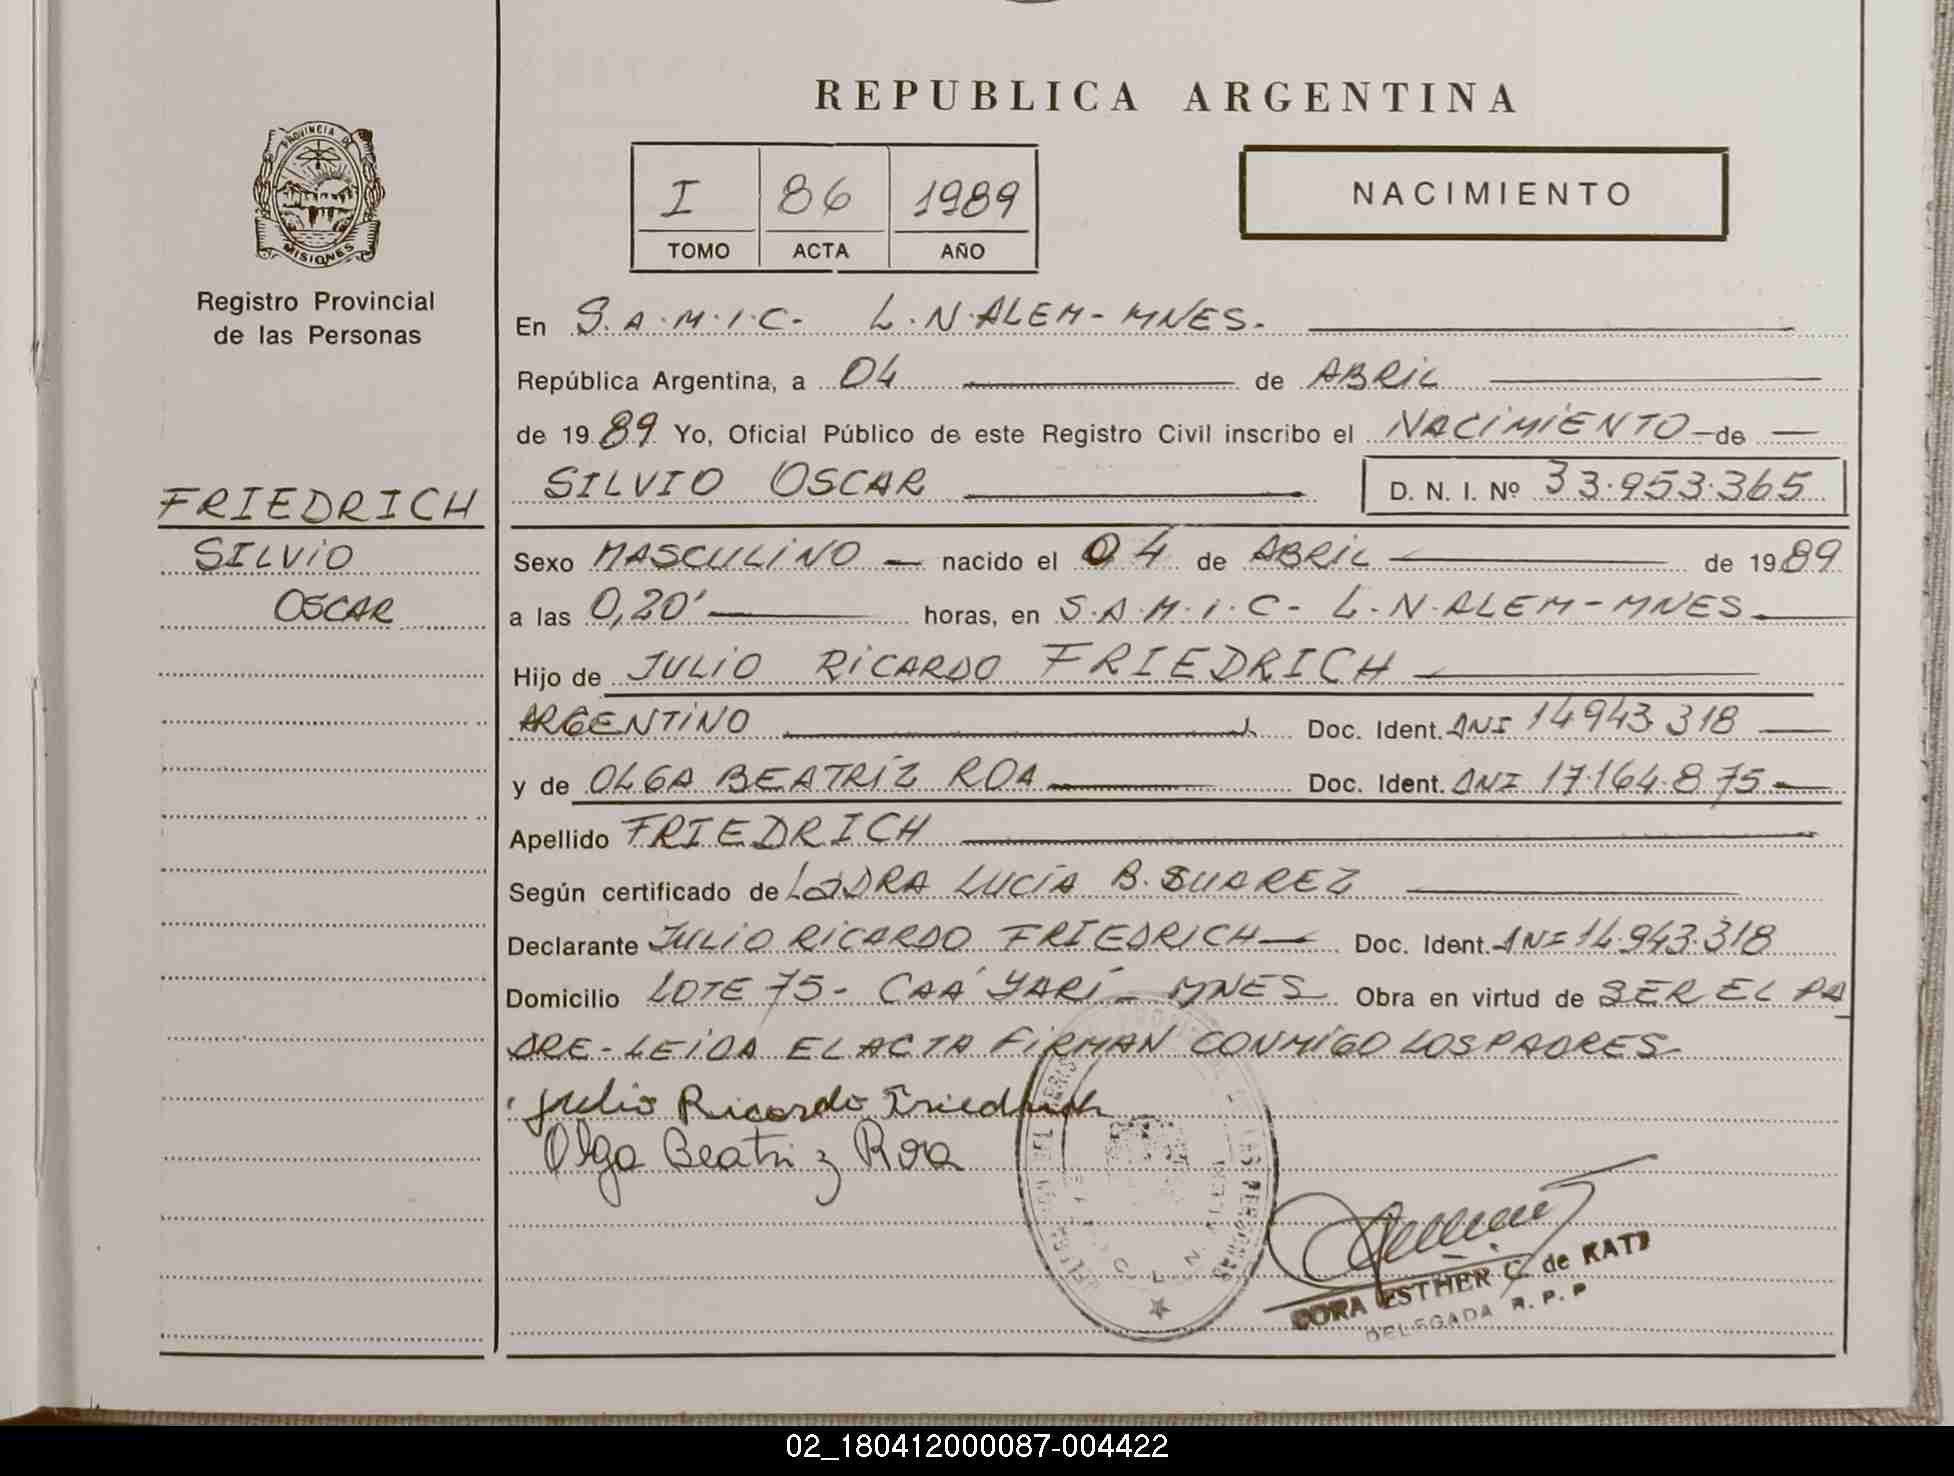 REPUBLICA ARGENTINA
PROVINCIA DE
MISIONES
Registro Provincial
de las Personas
I 86 1989
TOMO ACTA AÑO
NACIMIENTO
En S.A.M.I.C. L.N.ALEM-MNES.
República Argentina, a 04 de ABRIL
de 1989 Yo, Oficial Público de este Registro Civil inscribo el NACIMIENTO de
SILVIO OSCAR D. N. I. Nº 33.953.365
FRIEDRICH
SILVIO
OSCAR
Sexo MASCULINO nacido el 04 de ABRIL de 1989
a las 0,20' horas, en S.A.M.I.C- L.N.ALEM-MNES
Hijo de JULIO RICARDO FRIEDRICH
ARGENTINO Doc. Ident. DNI 14943.318
y de OLGA BEATRÍZ ROA Doc. Ident. DNI 17.164.875
Apellido FRIEDRICH
Según certificado de LUCÍA B. SUAREZ
Declarante JULIO RICARDO FRIEDRICH Doc. Ident. DNI 14.943.318
Domicilio LOTE 75- CAÁ YARÍ- MNES Obra en virtud de SER EL PA
DRE-LEIDA EL ACTA FIRMAN CONMIGO LOS PADRES
Julio Ricardo Friedrich
Olga Beatriz Roa
L. N. ALEM
DORA ESTHER C. de KATZ
DELEGADA R. P. P
02_180412000087-004422